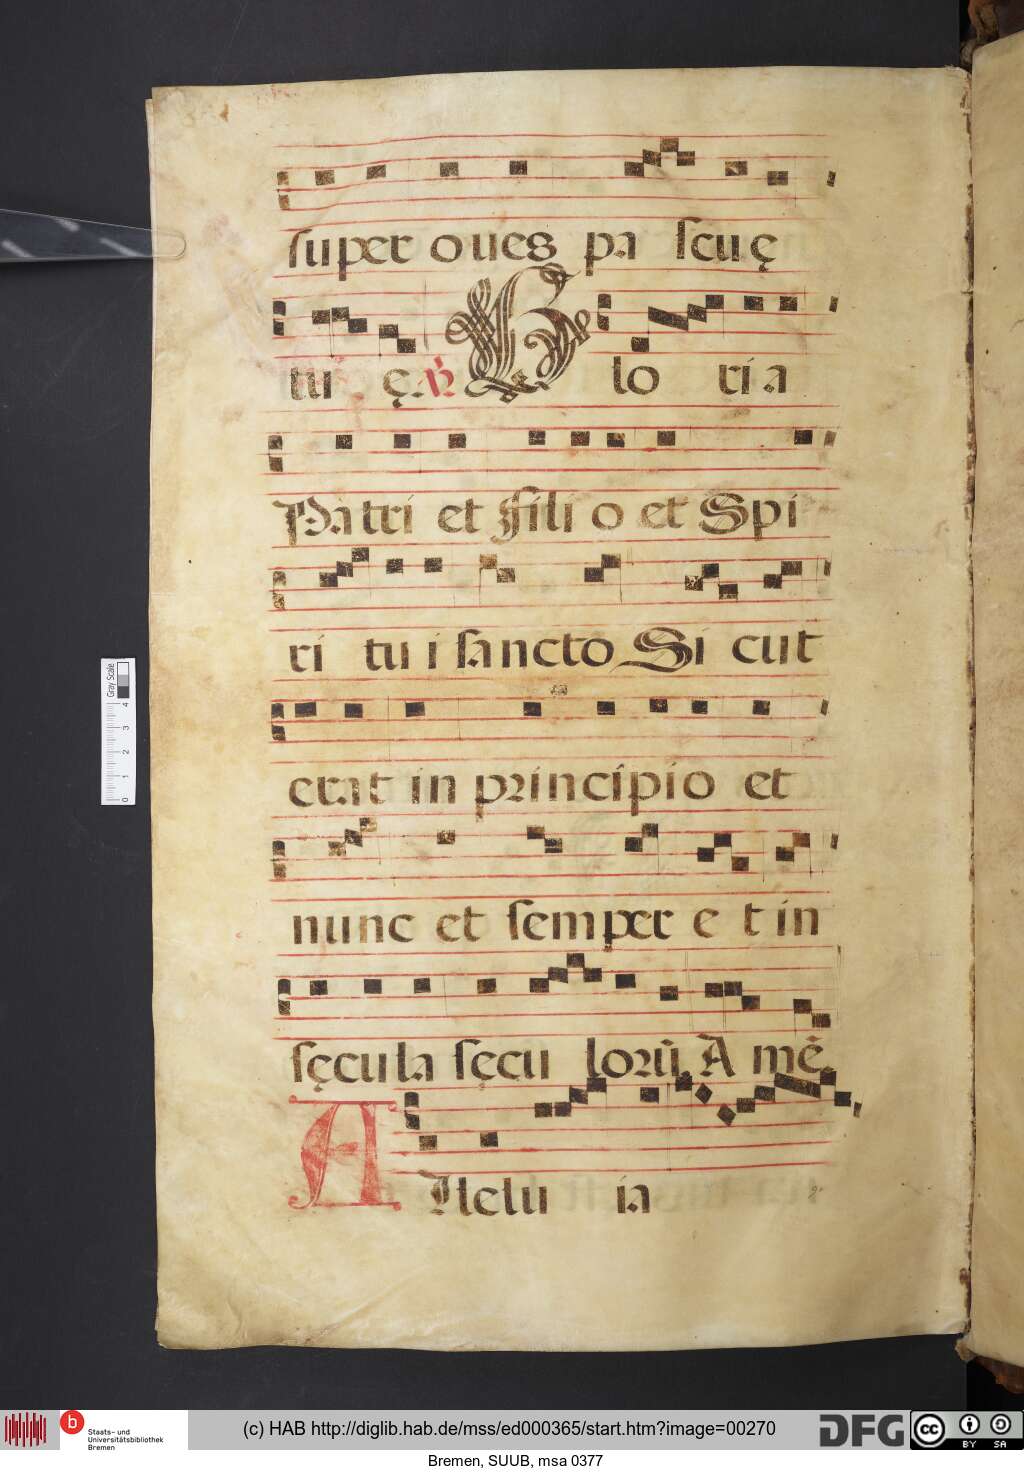 super oues pa scuę
tu ę. ℣ G lo ri a
Patri et Fili o et Spi
ri tu i sancto Si cut
erat in principio et
nunc et semper e t in
sęcula sęcu lorū. A mē.
A lle lu ia
Gray Scale
0 1 2 3 4
b Staats- und
Universitätsbibliothek
Bremen
(c) HAB http://diglib.hab.de/mss/ed000365/start.htm?image=00270
DFG
cc BY SA
Bremen, SUUB, msa 0377